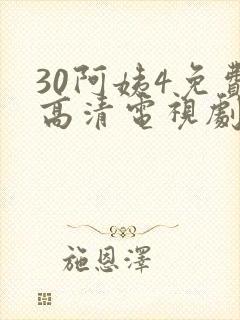 30阿姨4免費
高清電視劇
施恩澤